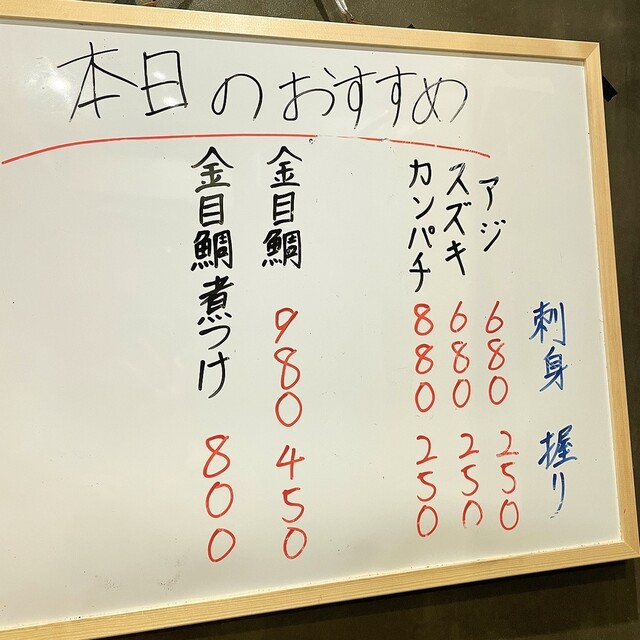 本日のおすすめ
刺身 握り
アジ 680 250
スズキ 680 250
カンパチ 880 250
金目鯛 980 450
金目鯛煮つけ 800